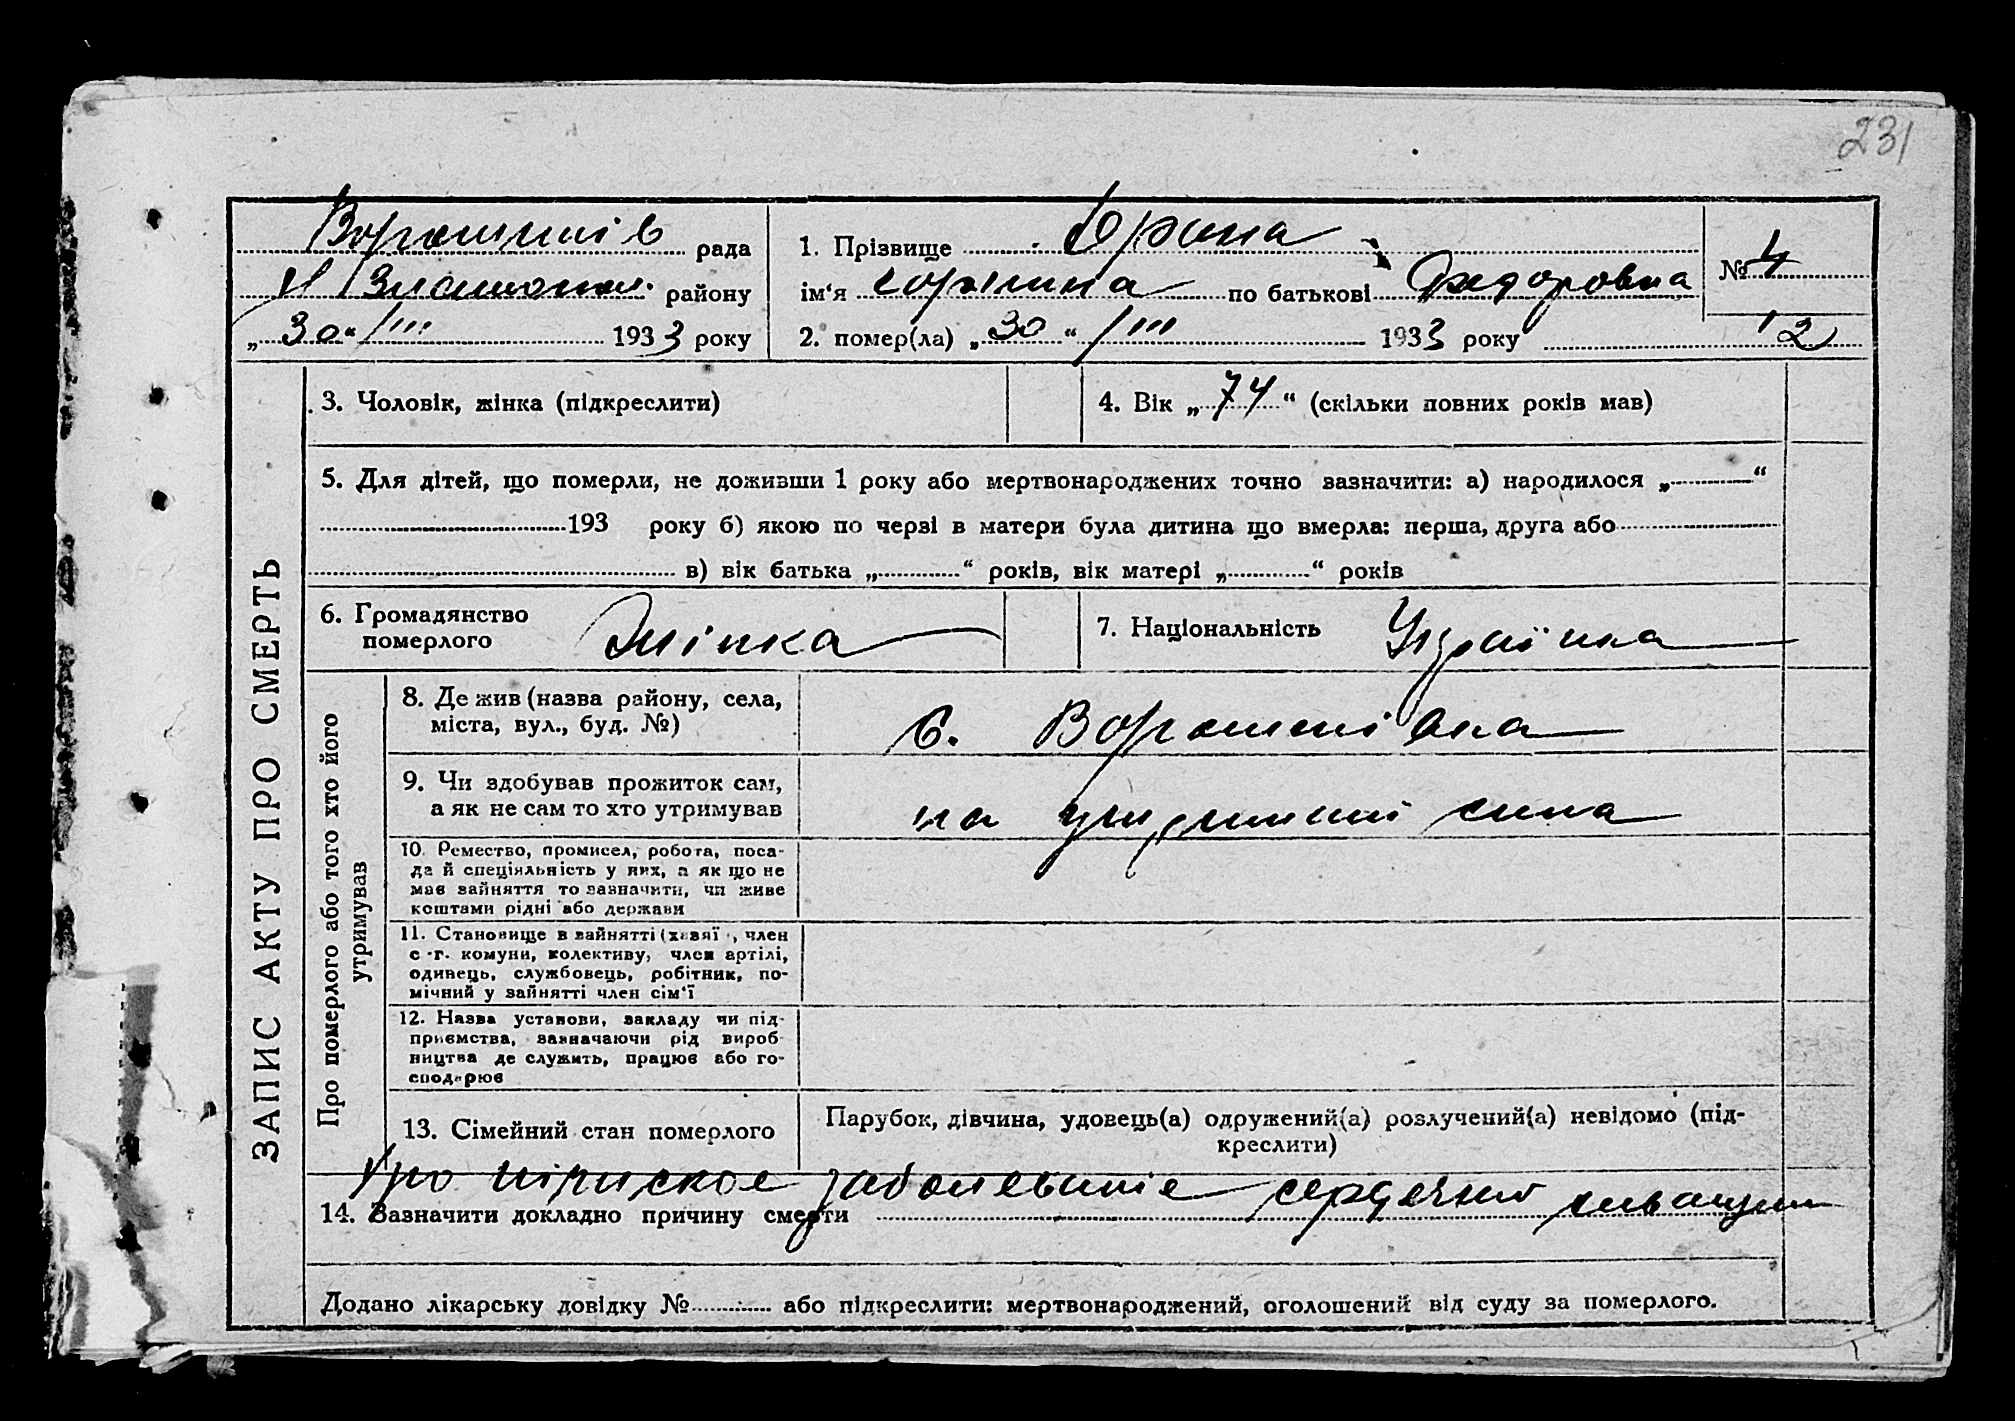 231
рада
1. Прізвище
району
ім‘я по батькові Федоровна
№ 4
„ 30 “ / III 1933 року
2. помер(ла) „ 30 “ / III 1933 року 12
ЗАПИС АКТУ ПРО СМЕРТЬ
3. Чоловік, жінка (підкреслити)
4. Вік „ 74 “ (скільки повних років мав)
5. Для дітей, що померли, не доживши 1 року або мертвонароджених точно зазначити: а) народилося „ “
193 року б) якою по черві в матери була дитина що вмерла: перша, друга або
в) вік батька „ “ років, вік матері „ “ років
6. Громадянство
померлого
7. Національність Українка
Про померлого або того хто його
утримував
8. Де жив (назва району, села,
міста, вул., буд. №)
с.
9. Чи здобував прожиток сам,
а як не сам то хто утримував
на сина
10. Ремество, промисел, робота, поса-
да й спеціяльність у них, а як що не
має зайняття то зазначити, чи живе
коштами рідні або держави
11. Становище в зайнятті ( , член
с.-г. комуни, колективу, член артілі,
одинець, службовець, робітник, по-
мічний у зайнятті член сім‘ї
12. Назва установи, закладу чи під-
приємства, зазначаючи рід вироб-
ництва де служить, працює або го-
сподарює
13. Сімейний стан померлого
Парубок, дівчина, удовець(а) одружений(а) розлучений(а) невідомо (під-
креслити)
14. Зазначити докладно причину смерти
Додано лікарську довідку № або підкреслити: мертвонароджений, оголошений від суду за померлого.